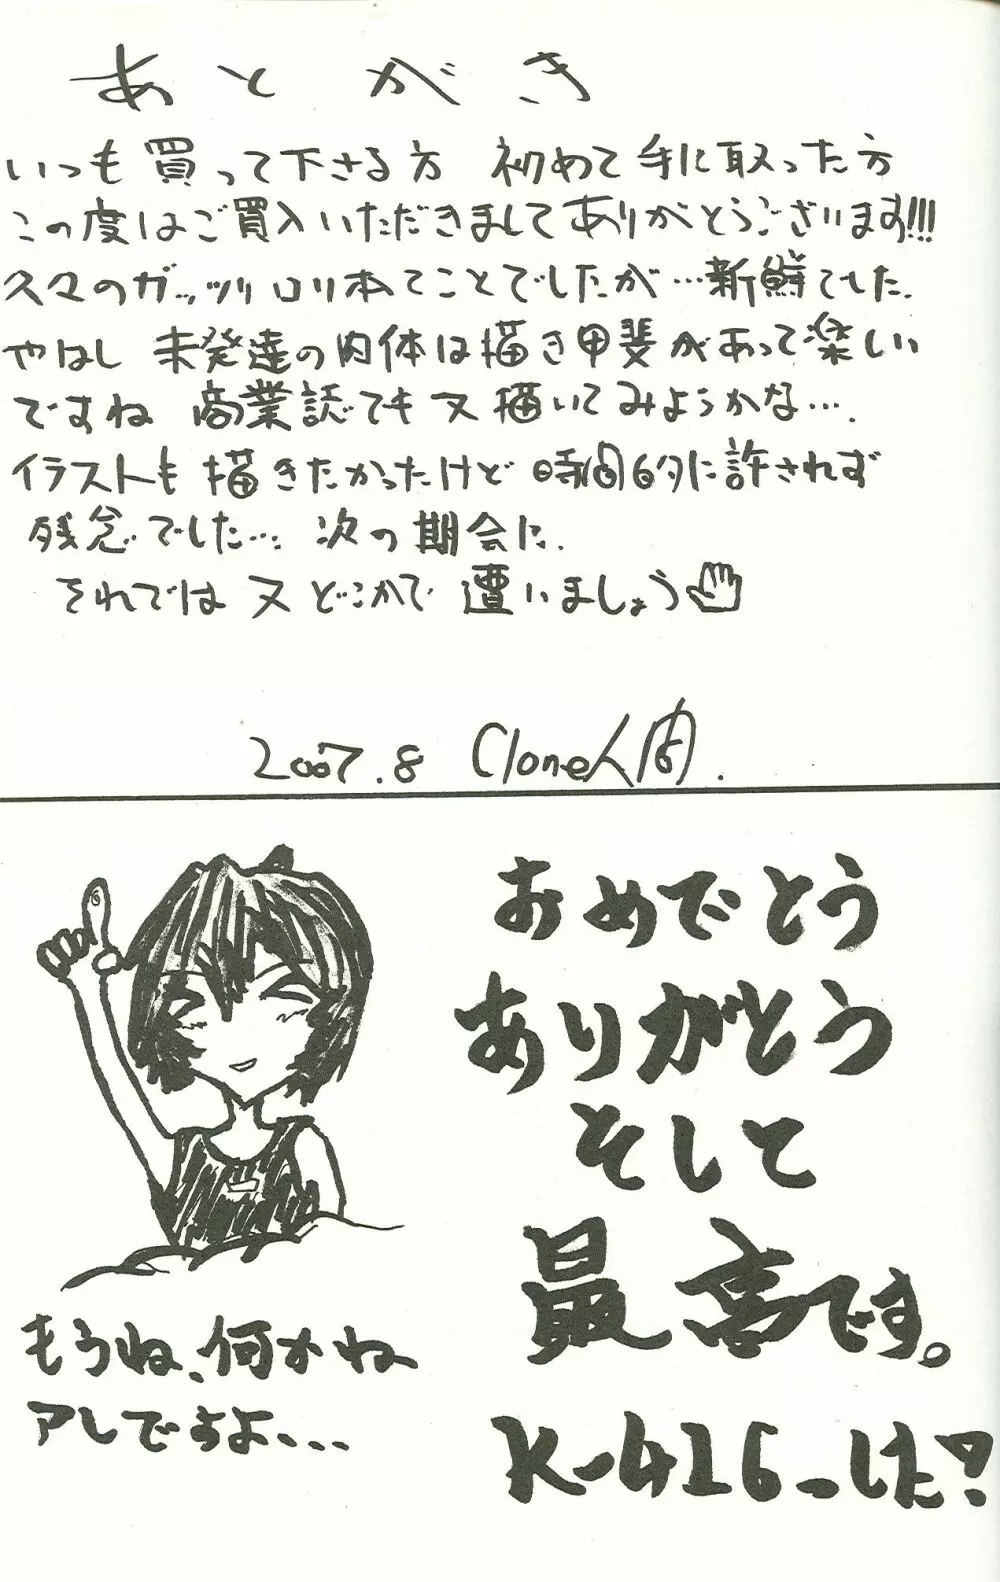 あとがき
いつも買って下さる方 初めて手に取った方
この度はご買入いただきましてありがとうございます!!!
久々のガッツリロリ本てことでしたが…新鮮でした.
やはし 未発達の肉体は描き甲斐があって楽しい
ですね 商業誌でも又描いてみようかな….
イラストも描きたかったけど時間的に許されず
残念でした… 次の期会に.
それでは又どこかで遭いましょう
2007.8 Clone人間.
おめでとう
ありがとう
そして
最高です。
もうね、何かね
アレですよ、、、
K-416-した?